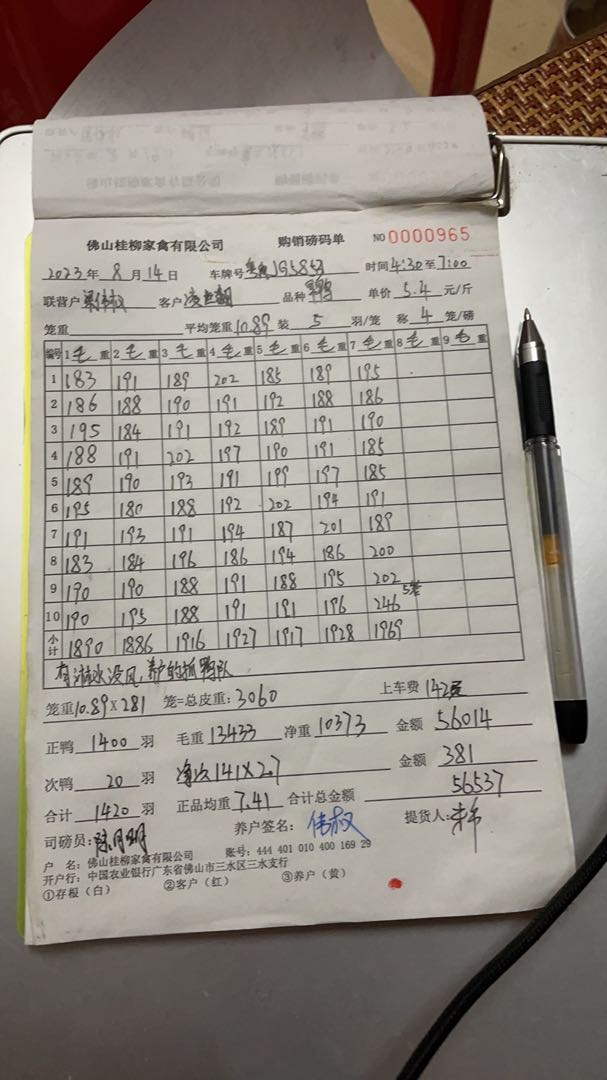 佛山桂柳家禽有限公司 购销磅码单 NO 0000965
2023年 8月 14日 车牌号 JG5857 时间 4:30至7:00
联营户 客户 品种 单价 5.4 元/斤
笼重 平均笼重 10.89 装 5 羽/笼 称 4 笼/磅
编号 1毛重 2毛重 3毛重 4毛重 5毛重 6毛重 7毛重 8毛重 9毛重
1 183 191 189 202 185 189 195
2 186 188 190 191 192 188 186
3 195 184 191 192 189 191 190
4 188 191 202 197 190 191 185
5 189 190 193 191 199 197 185
6 195 180 188 192 202 194 191
7 191 193 191 194 187 201 189
8 183 184 196 186 194 186 200
9 190 190 188 191 188 195 202
10 190 195 188 191 191 196 246 5笼
小计 1890 1886 1916 1927 1917 1928 1969
有淋水没风,养户的抓鸭队
笼重 10.89×281 笼=总皮重: 3060 上车费 142
正鸭 1400 羽 毛重 13433 净重 10373 金额 56014
次鸭 20 羽 净次 141×2.7 金额 381
合计 1420 羽 正品均重 7.41 合计总金额 56537
司磅员: 陈月明 养户签名: 伟权 提货人:
户 名: 佛山桂柳家禽有限公司 账号: 444 401 010 400 169 29
开户行: 中国农业银行广东省佛山市三水区三水支行
①存根(白) ②客户(红) ③养户(黄)